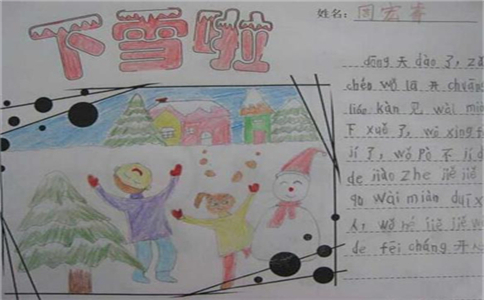 下雪啦
姓名:周宏
dōng 天 dào 了, zǎ
chén wǒ lā 开 chuāng
lián kàn 见 wài mià
下 xuě 了, wǒ xìng f
jí 了, wǒ pò 不 jí d
de jiào zhe jiě jiě
qù wài miàn duī x
人, wǒ hé jiě jiě w
de fēi cháng 开心